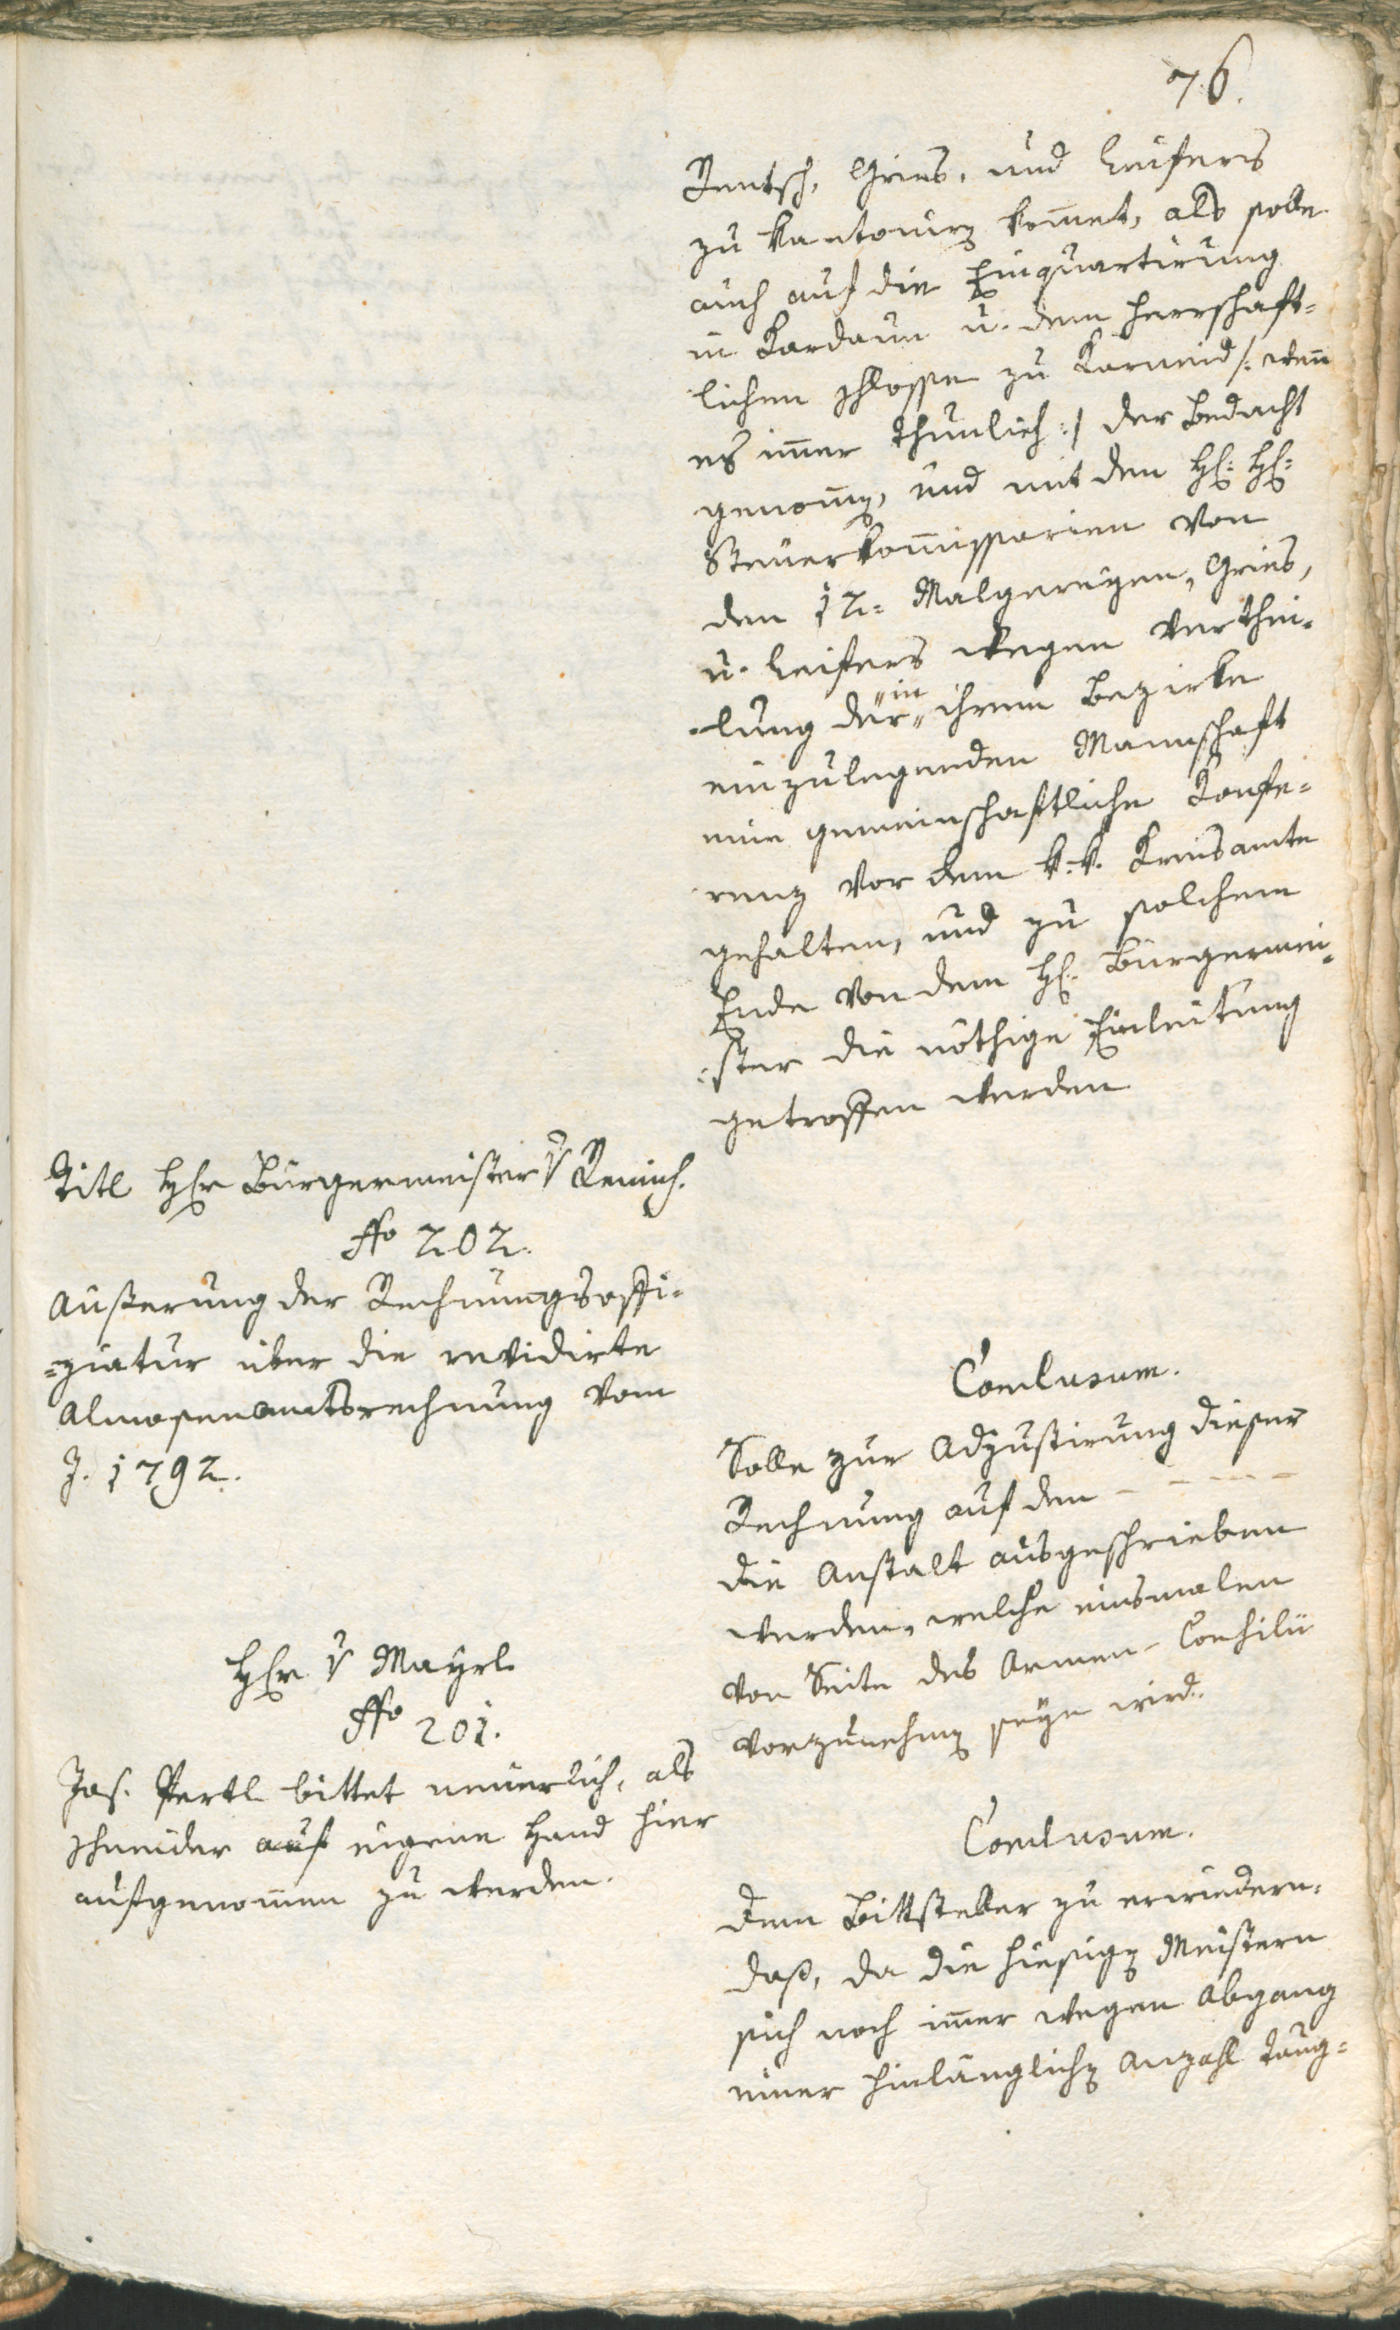 76.
Rentsch, Gries, und Leifers
zu kantonirẽ kom̃et, als solle
auch auf die Einquartirung
in Kardaun u. dem herrschaft=
lichen Schlosse zu Karneid /: wenn
es im̃er thunlich :/ der Bedacht
genom̃ẽ, und mit den H: H:
Steuerkom̃issarien von
den 12= Malgereyen, Gries,
u. Leifers wegen Verthei=
=lung der "in" ihrem Bezirke
einzulegenden Mannschaft
eine gemeinschaftliche Konfe=
renz vor dem k. k. Kreisamte
gehalten, und zu solchem
Ende von dem H. Bürgermei=
=ster die nöthige Einleitung
getroffen werden
Titl Herr Bürgermeister v Remich.
No 202.
Äußerung der Rechnungsoffi=
=ziatur über die revidirte
Almosenamtsrechnung vom
J. 1792.
Conclusum.
Solle zur Adjustirung dieser
Rechnung auf den - - - - -
die Anstalt ausgeschrieben
werden, welche einsmalen
von Seite des Armen-Consilii
vorzunehmẽ seyn wird.
Herr v Mayrl
No 201.
Jos. Pertl bittet neuerlich, als
Schneider auf eigene Hand hier
aufgenom̃en zu werden.
Conclusum.
Dem Bittsteller zu erwiedern,
daß, da die hiesigẽ Meistern
sich noch im̃er wegen Abgang
einer hinlänglichẽ Anzahl taug=